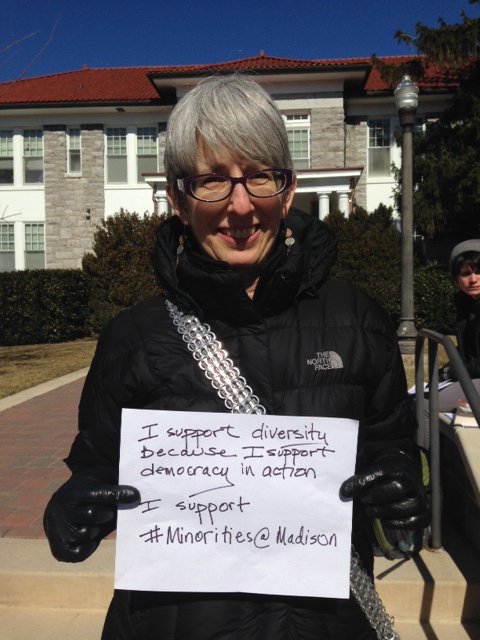 I support diversity
because I support
democracy in action
I support
#Minorities@Madison
THE
NORTH
FACE